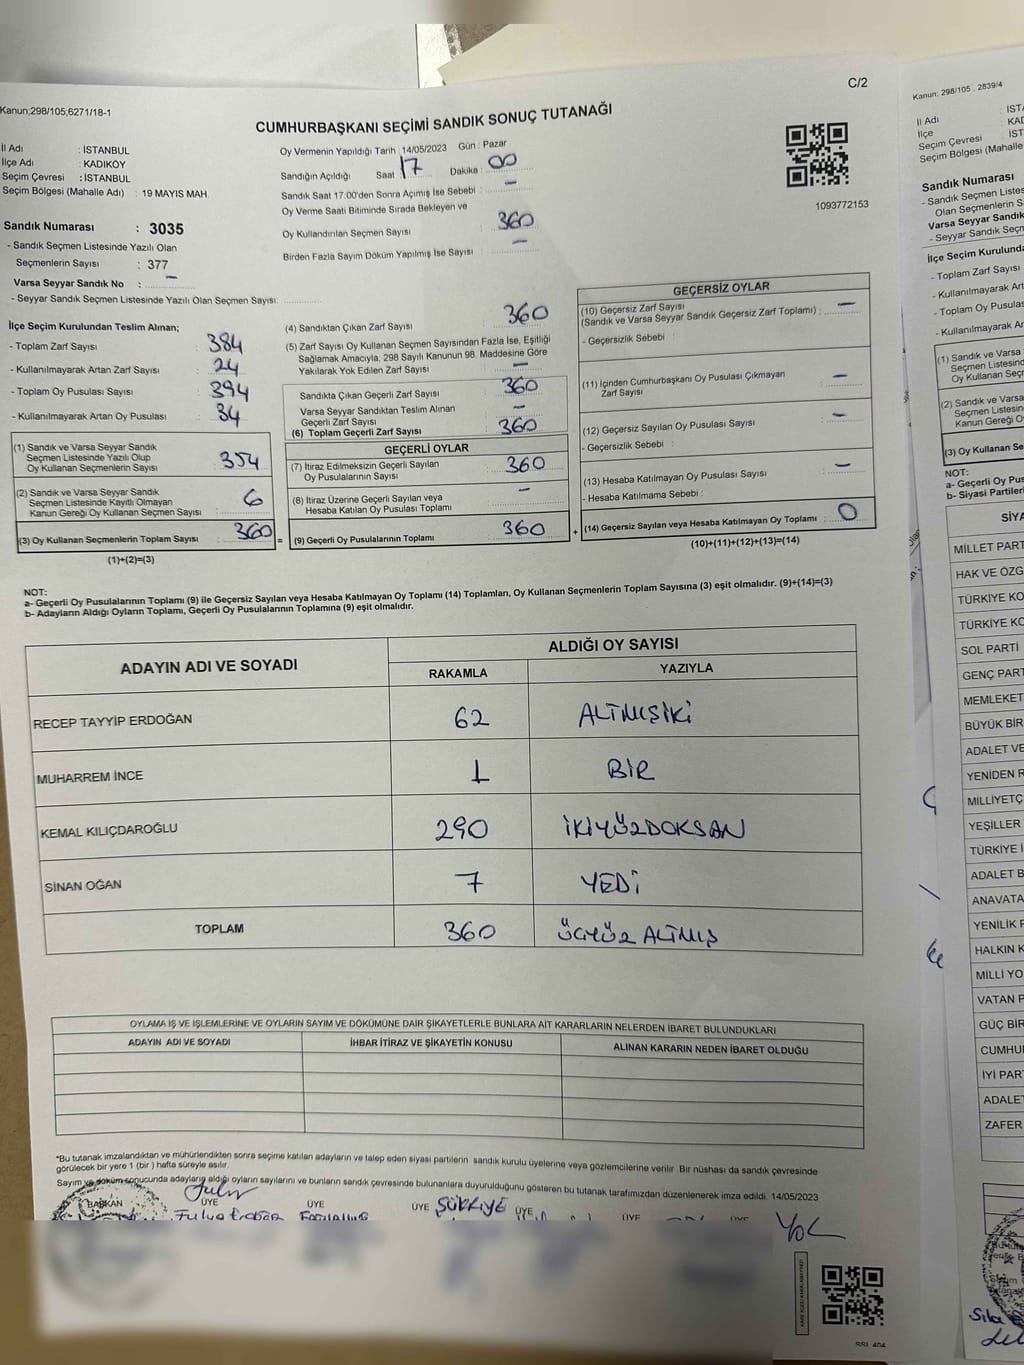 Kanun;298/105;6271/18-1
C/2
CUMHURBAŞKANI SEÇİMİ SANDIK SONUÇ TUTANAĞI
İl Adı : İSTANBUL
İlçe Adı : KADIKÖY
Seçim Çevresi : İSTANBUL
Seçim Bölgesi (Mahalle Adı) : 19 MAYIS MAH
Oy Vermenin Yapıldığı Tarih : 14/05/2023 Gün : Pazar
Sandığın Açıldığı Saat : 17 Dakika : 00
Sandık Saat 17:00'den Sonra Açımış İse Sebebi : –
Oy Verme Saati Bitiminde Sırada Bekleyen ve
Oy Kullandırılan Seçmen Sayısı : 360
Birden Fazla Sayım Döküm Yapılmış İse Sayısı : –
1093772153
Sandık Numarası : 3035
- Sandık Seçmen Listesinde Yazılı Olan
Seçmenlerin Sayısı : 377
Varsa Seyyar Sandık No : –
- Seyyar Sandık Seçmen Listesinde Yazılı Olan Seçmen Sayısı:
İlçe Seçim Kurulundan Teslim Alınan;
- Toplam Zarf Sayısı : 384
- Kullanılmayarak Artan Zarf Sayısı : 24
- Toplam Oy Pusulası Sayısı : 394
- Kullanılmayarak Artan Oy Pusulası : 34
(1) Sandık ve Varsa Seyyar Sandık
Seçmen Listesinde Yazılı Olup
Oy Kullanan Seçmenlerin Sayısı : 354
(2) Sandık ve Varsa Seyyar Sandık
Seçmen Listesinde Kayıtlı Olmayan
Kanun Gereği Oy Kullanan Seçmen Sayısı : 6
(3) Oy Kullanan Seçmenlerin Toplam Sayısı : 360 =
(1)+(2)=(3)
(4) Sandıktan Çıkan Zarf Sayısı : 360
(5) Zarf Sayısı Oy Kullanan Seçmen Sayısından Fazla İse, Eşitliği
Sağlamak Amacıyla; 298 Sayılı Kanunun 98. Maddesine Göre
Yakılarak Yok Edilen Zarf Sayısı : –
Sandıkta Çıkan Geçerli Zarf Sayısı : 360
Varsa Seyyar Sandıktan Teslim Alınan
Geçerli Zarf Sayısı : –
(6) Toplam Geçerli Zarf Sayısı : 360
GEÇERLİ OYLAR
(7) İtiraz Edilmeksizin Geçerli Sayılan
Oy Pusulalarının Sayısı : 360
(8) İtiraz Üzerine Geçerli Sayılan veya
Hesaba Katılan Oy Pusulası Toplamı : –
(9) Geçerli Oy Pusulalarının Toplamı : 360 +
GEÇERSİZ OYLAR
(10) Geçersiz Zarf Sayısı
(Sandık ve Varsa Seyyar Sandık Geçersiz Zarf Toplamı) : –
- Geçersizlik Sebebi :
(11) İçinden Cumhurbaşkanı Oy Pusulası Çıkmayan
Zarf Sayısı : –
(12) Geçersiz Sayılan Oy Pusulası Sayısı : –
- Geçersizlik Sebebi :
(13) Hesaba Katılmayan Oy Pusulası Sayısı : –
- Hesaba Katılmama Sebebi :
(14) Geçersiz Sayılan veya Hesaba Katılmayan Oy Toplamı : 0
(10)+(11)+(12)+(13)=(14)
NOT:
a- Geçerli Oy Pusulalarının Toplamı (9) ile Geçersiz Sayılan veya Hesaba Katılmayan Oy Toplamı (14) Toplamları, Oy Kullanan Seçmenlerin Toplam Sayısına (3) eşit olmalıdır. (9)+(14)=(3)
b- Adayların Aldığı Oyların Toplamı, Geçerli Oy Pusulalarının Toplamına (9) eşit olmalıdır.
ADAYIN ADI VE SOYADI
ALDIĞI OY SAYISI
RAKAMLA YAZIYLA
RECEP TAYYİP ERDOĞAN 62 ALTMIŞİKİ
MUHARREM İNCE 1 BİR
KEMAL KILIÇDAROĞLU 290 İKİYÜZDOKSAN
SİNAN OĞAN 7 YEDİ
TOPLAM 360 ÜÇYÜZ ALTMIŞ
OYLAMA İŞ VE İŞLEMLERİNE VE OYLARIN SAYIM VE DÖKÜMÜNE DAİR ŞİKAYETLERLE BUNLARA AİT KARARLARIN NELERDEN İBARET BULUNDUKLARI
ADAYIN ADI VE SOYADI İHBAR İTİRAZ VE ŞİKAYETİN KONUSU ALINAN KARARIN NEDEN İBARET OLDUĞU
*Bu tutanak imzalandıktan ve mühürlendikten sonra seçime katılan adayların ve talep eden siyasi partilerin sandık kurulu üyelerine veya gözlemcilerine verilir. Bir nüshası da sandık çevresinde
görülecek bir yere 1 (bir ) hafta süreyle asılır.
Sayım ve döküm sonucunda adayların aldığı oyların sayılarını ve bunların sandık çevresinde bulunanlara duyurulduğunu gösteren bu tutanak tarafımızdan düzenlenerek imza edildi. 14/05/2023
BAŞKAN ÜYE ÜYE ÜYE ŞÜKRİYE ÜYE ÜYE ÜYE YOL
Kanun: 298/105 , 2839/4
İl Adı
İlçe
Seçim Çevresi
Seçim Bölgesi (Mahalle
Sandık Numarası
- Sandık Seçmen Listes
Olan Seçmenlerin S
Varsa Seyyar Sandık
- Seyyar Sandık Seçm
İlçe Seçim Kurulunda
- Toplam Zarf Sayısı
- Kullanılmayarak Art
- Toplam Oy Pusulas
- Kullanılmayarak Ar
(1) Sandık ve Varsa
Seçmen Listesind
Oy Kullanan Seç
(2) Sandık ve Varsa
Seçmen Listesi
Kanun Gereği O
(3) Oy Kullanan Se
NOT:
a- Geçerli Oy Pus
b- Siyasi Partileri
SİYA
MİLLET PART
HAK VE ÖZG
TÜRKİYE KO
TÜRKİYE KO
SOL PARTİ
GENÇ PART
MEMLEKET
BÜYÜK BİR
ADALET VE
YENİDEN R
MİLLİYETÇ
YEŞİLLER
TÜRKİYE İ
ADALET B
ANAVATA
YENİLİK P
HALKIN K
MİLLİ YO
VATAN P
GÜÇ BİR
CUMHU
İYİ PAR
ADALET
ZAFER